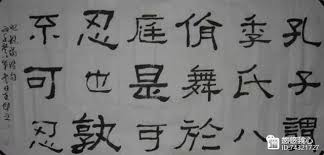 孔子謂
季氏八
佾舞於
庭是可
忍也孰
不可忍
悠悠我心
ID:74321727